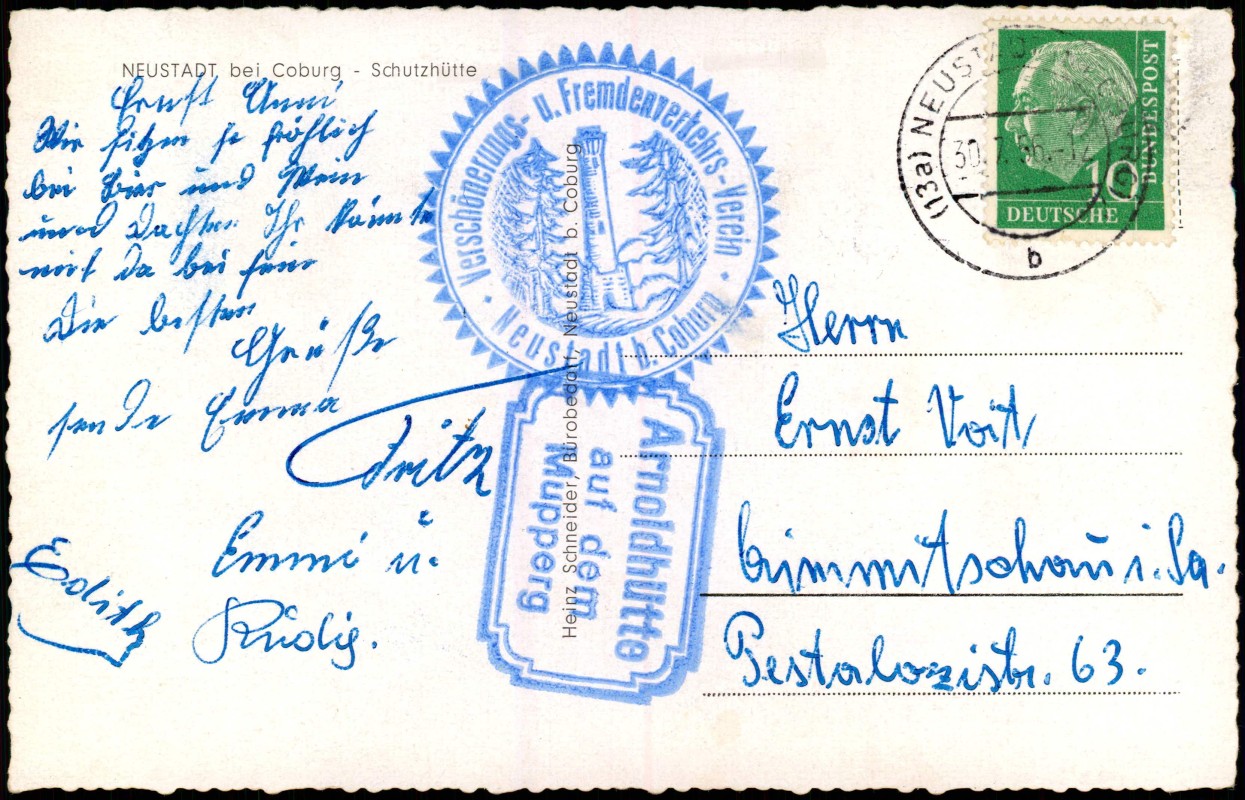 NEUSTADT bei Coburg - Schutzhütte
Ernst Anni
Wir sitzen so fröhlich
bei Bier und Wein
und dachten Ihr könnte
mit da bei sein
Die besten
Grüße
sende Emma
Fritz
Emmi u.
Rüdig.
Edith
Verschönerungs- u. Fremdenverkehrs-Verein
· Neustadt b. Coburg ·
Arnoldhütte
auf dem
Mupperg
Heinz Schneider, Bürobedarf, Neustadt b. Coburg
(13a) NEUSTADT
30.7.56.-12
b
BUNDESPOST
10
DEUTSCHE
Herrn
Ernst Voit
Crimmitschau i. Sa.
Pestalozzistr. 63.